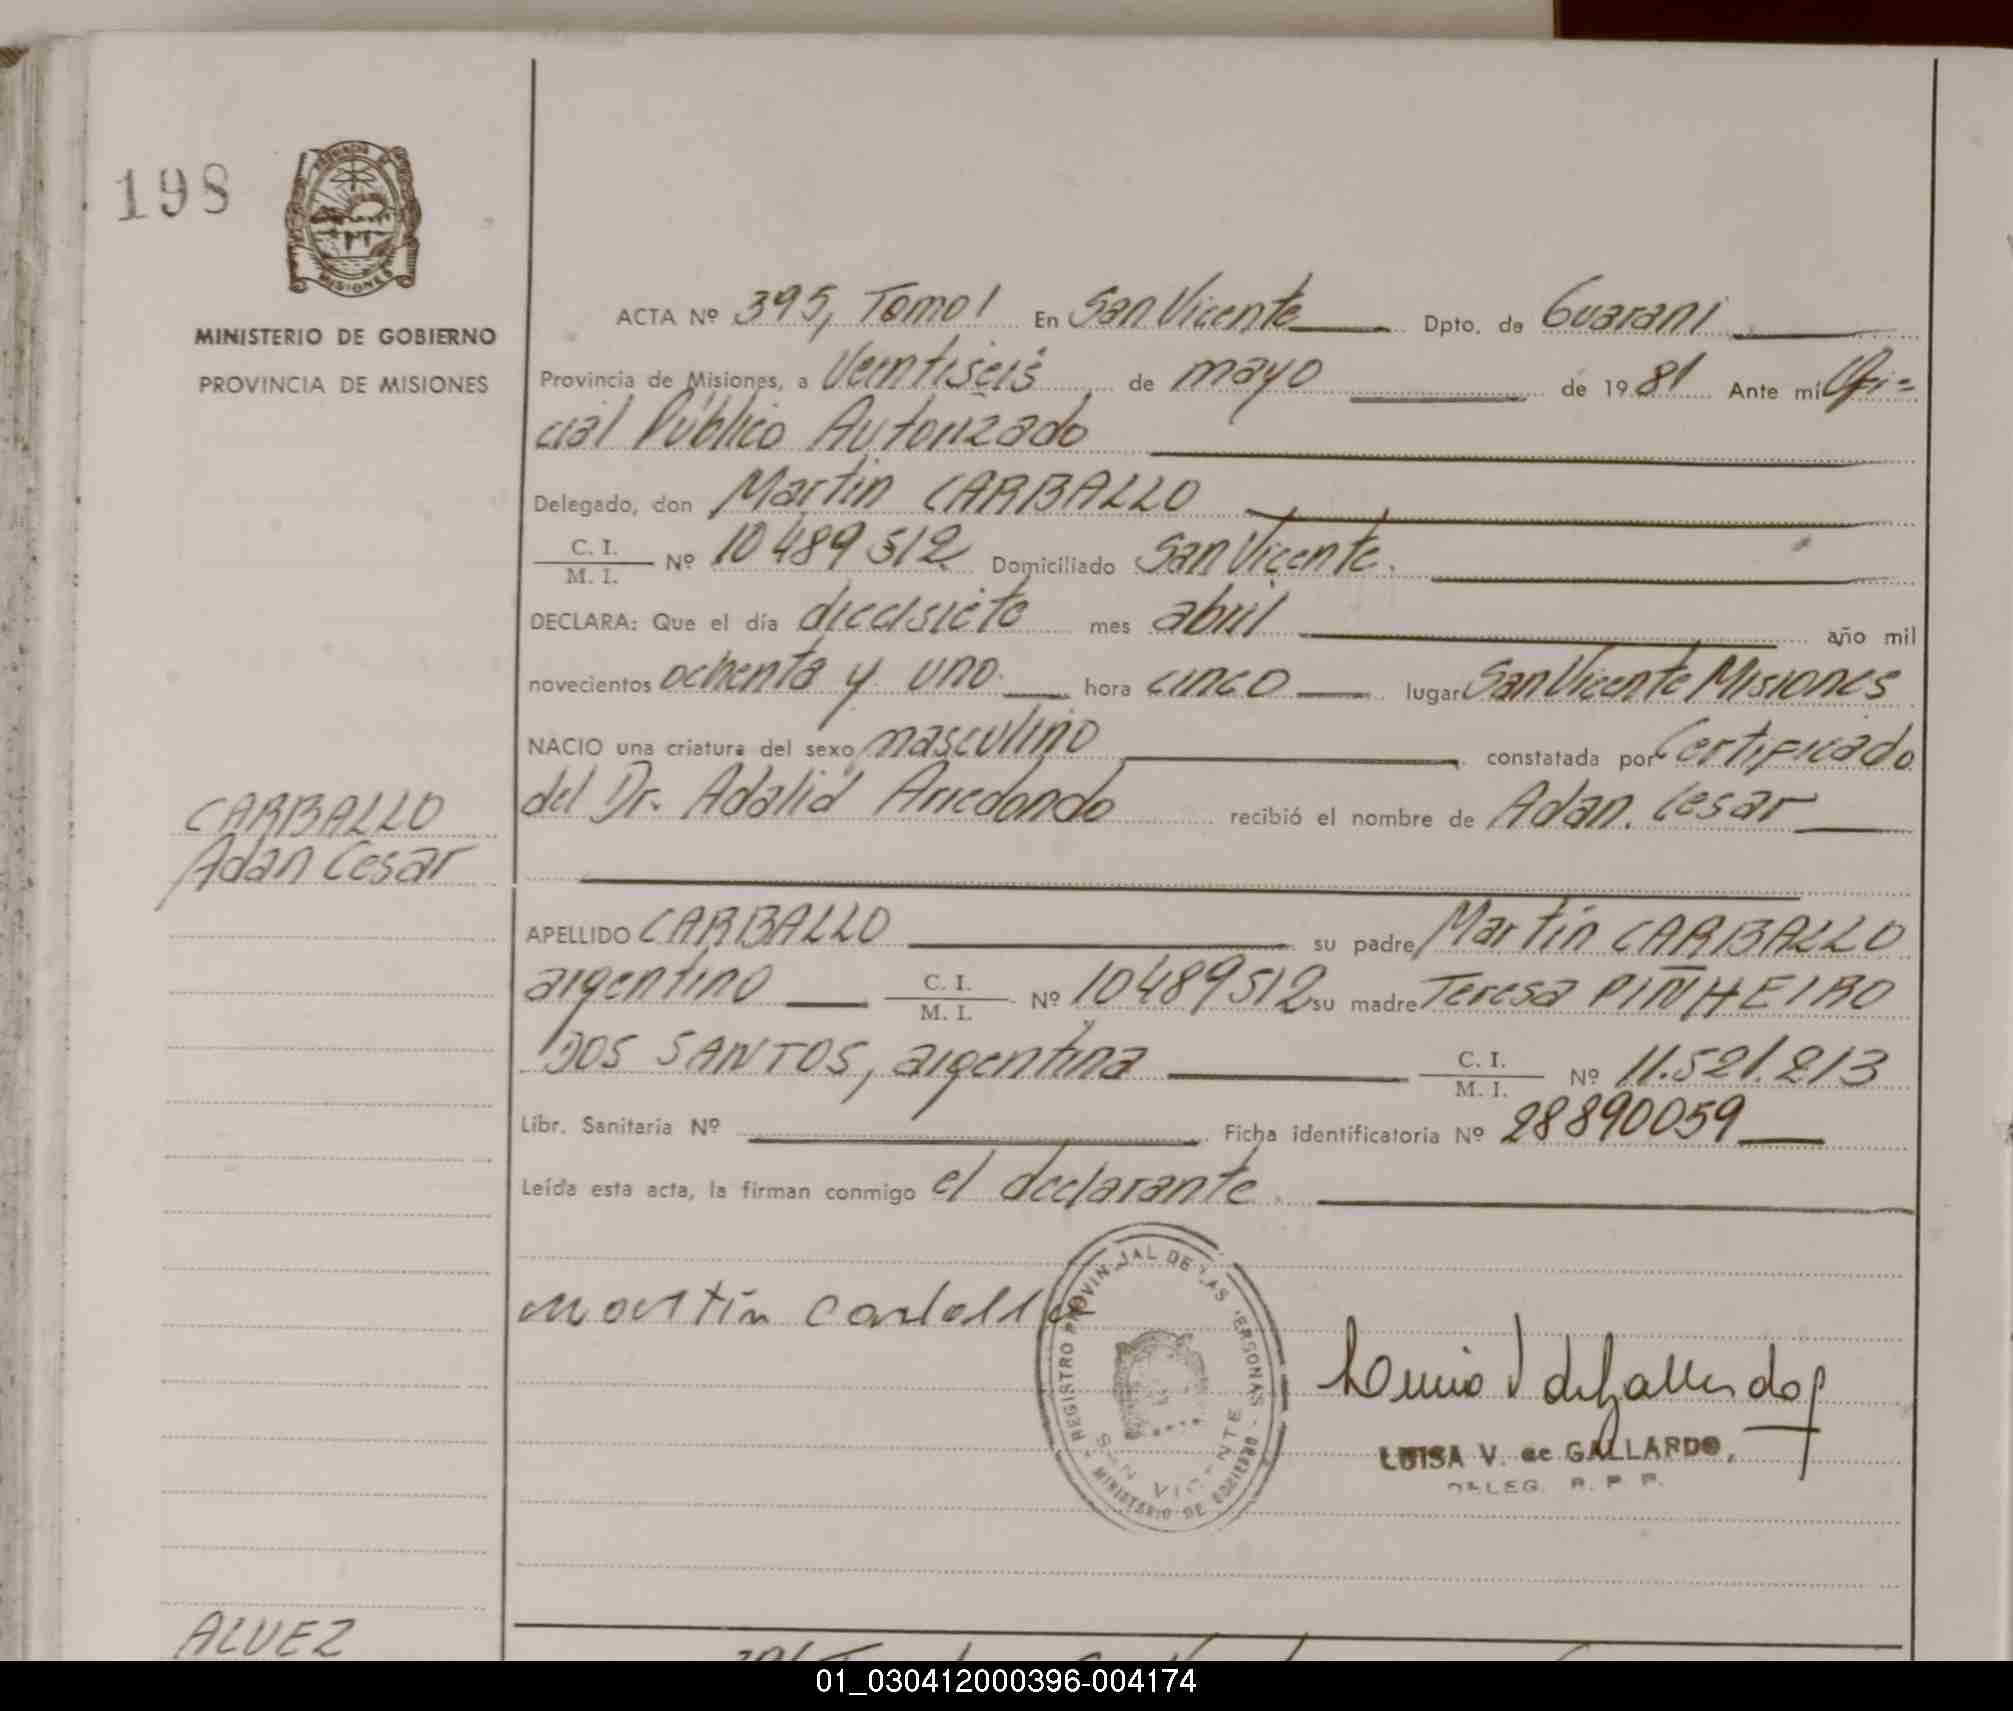 198
MISIONES
MINISTERIO DE GOBIERNO
PROVINCIA DE MISIONES
ACTA Nº 395, Tomo I En San Vicente Dpto. de Guarani
Provincia de Misiones, a Veintiseis de mayo de 1981 Ante mí Ofi=
cial Público Autorizado
Delegado, don Martin CARBALLO
C. I.
M. I. Nº 10489512 Domiciliado San Vicente.
DECLARA: Que el día diecisiete mes abril año mil
novecientos ochenta y uno hora cinco lugar San Vicente Misiones
NACIO una criatura del sexo masculino constatada por Certificado
del Dr. Adalid Arredondo recibió el nombre de Adan Cesar
CARBALLO
Adan Cesar
APELLIDO CARBALLO su padre Martin CARBALLO
argentino C. I.
M. I. Nº 10489512 su madre Teresa PIÑHEIRO
DOS SANTOS, argentina C. I.
M. I. Nº 11.521.213
Libr. Sanitaria Nº Ficha identificatoria Nº 28890059
Leída esta acta, la firman conmigo el declarante.
martín Carballo
REGISTRO PROVINCIAL DE LAS PERSONAS
SAN VICENTE
MINISTERIO DE GOBIERNO
LUISA V. de GALLARDO,
DELEG. R. P. P.
ALVEZ
01_030412000396-004174